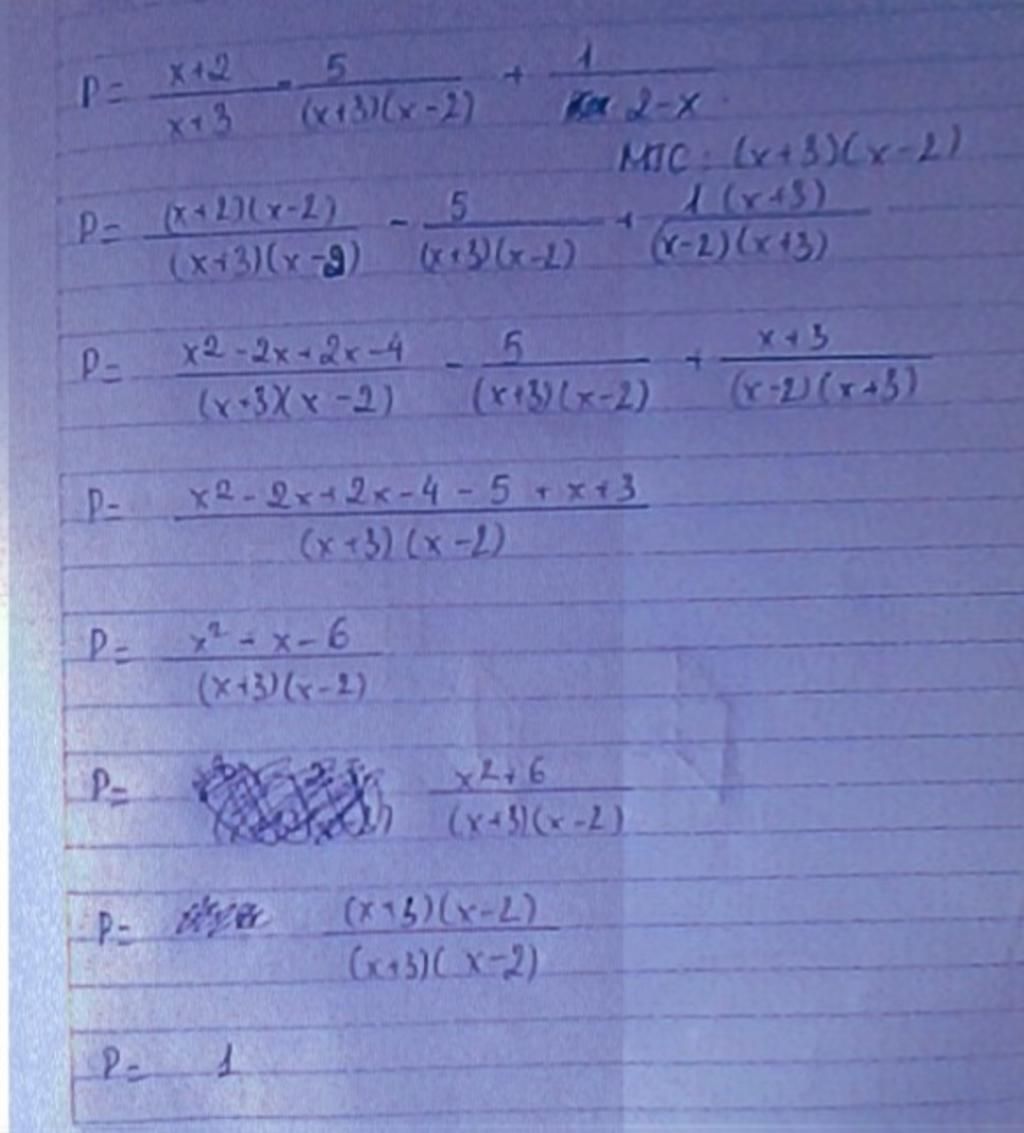 P = \frac{x+2}{x+3} - \frac{5}{(x+3)(x-2)} + \frac{1}{2-x}
MTC: (x+3)(x-2)
P = \frac{(x+2)(x-2)}{(x+3)(x-2)} - \frac{5}{(x+3)(x-2)} + \frac{1(x+3)}{(x-2)(x+3)}
P = \frac{x^2-2x+2x-4}{(x+3)(x-2)} - \frac{5}{(x+3)(x-2)} + \frac{x+3}{(x-2)(x+3)}
P = \frac{x^2-2x+2x-4-5+x+3}{(x+3)(x-2)}
P = \frac{x^2-x-6}{(x+3)(x-2)}
P = \frac{x^2+6}{(x+3)(x-2)}
P = \frac{(x+3)(x-2)}{(x+3)(x-2)}
P = 1